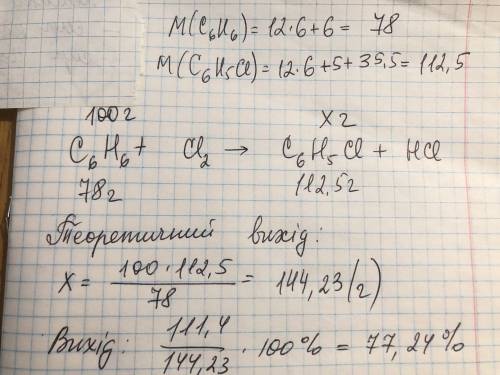 M(C₆H₆) = 12·6+6 = 78
M(C₆H₅Cl) = 12·6+5+35,5 = 112,5
100г X г
C₆H₆ + Cl₂ → C₆H₅Cl + HCl
78г 112,5г
Теоретичний вихід:
X = 100·112,5 / 78 = 144,23 (г)
Вихід: 111,4 / 144,23 · 100% = 77,24%